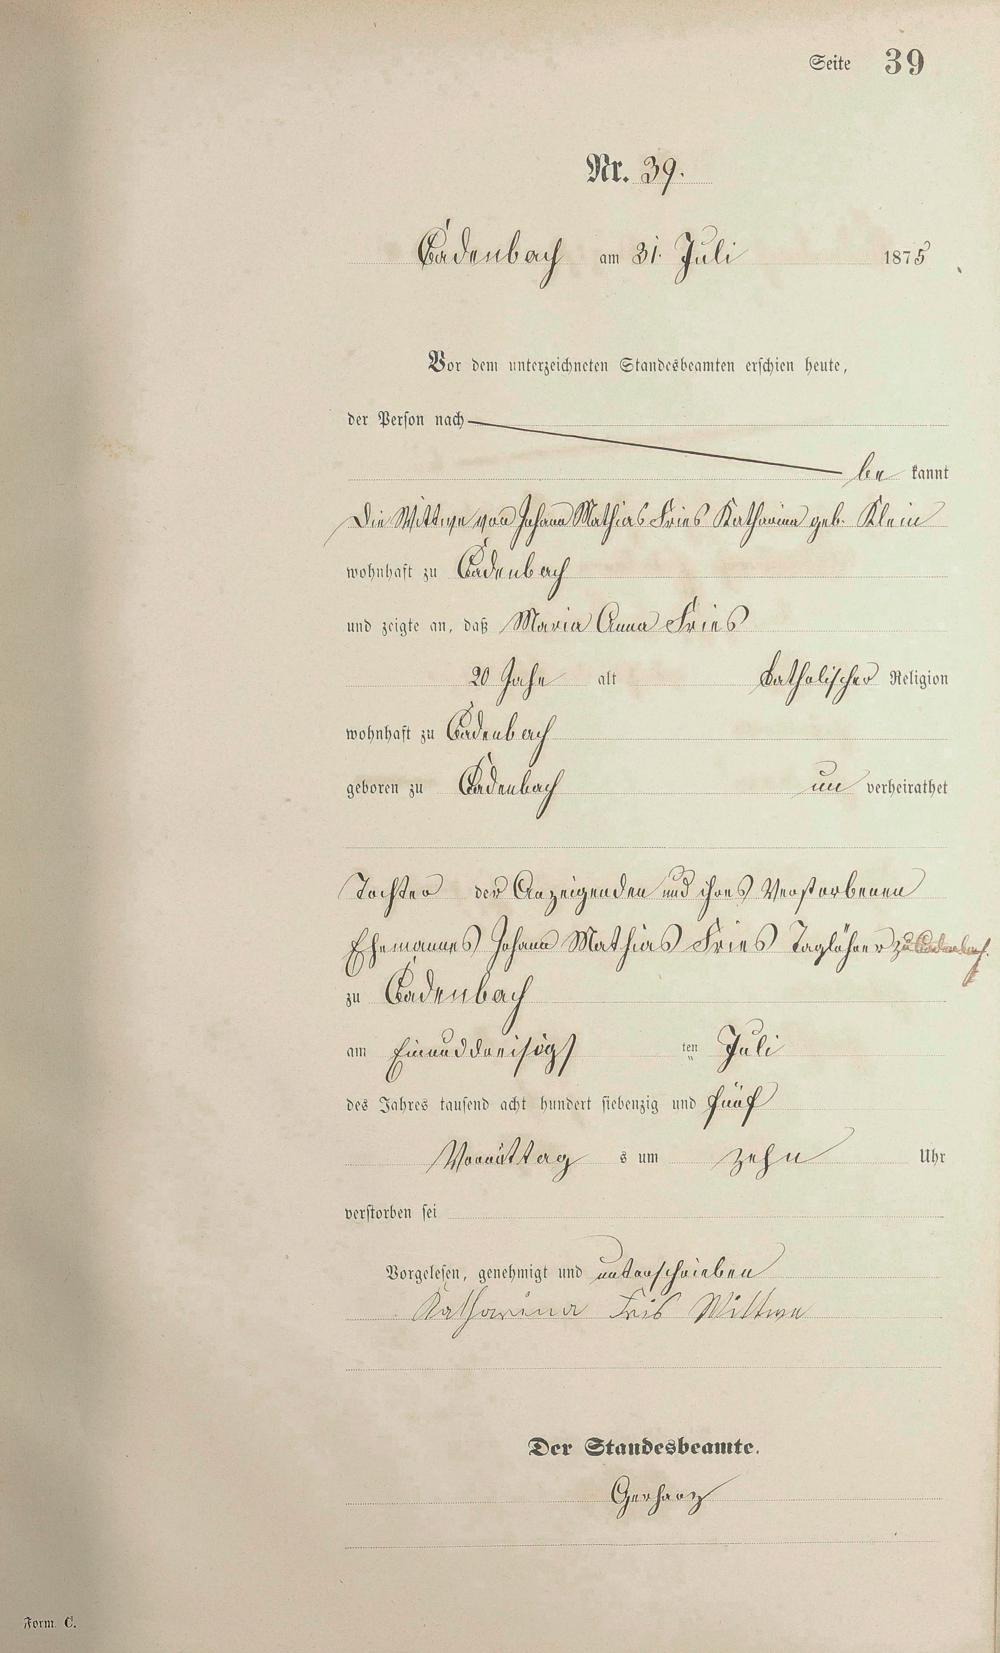 Seite 39
Nr. 39.
Cadenbach am 31. Juli 1875
Vor dem unterzeichneten Standesbeamten erschien heute,
der Person nach
be kannt
Die Wittwe von Johann Mathias Fries Katharina geb. Klein
wohnhaft zu Cadenbach
und zeigte an, daß Maria Anna Fries
20 Jahe alt katholischer Religion
wohnhaft zu Cadenbach
geboren zu Cadenbach un verheirathet
Tochter der Anzeigenden und ihres Verstorbenen
Ehemannes Johann Mathias Fries Taglöhner zu Cadenbach.
zu Cadenbach
am Einunddreisigs ten Juli
des Jahres tausend acht hundert siebenzig und fünf
Vormittag s um zehn Uhr
verstorben sei
Vorgelesen, genehmigt und unterschrieben
Katharina Fris Wittwe
Der Standesbeamte.
Gerharz
Form. C.